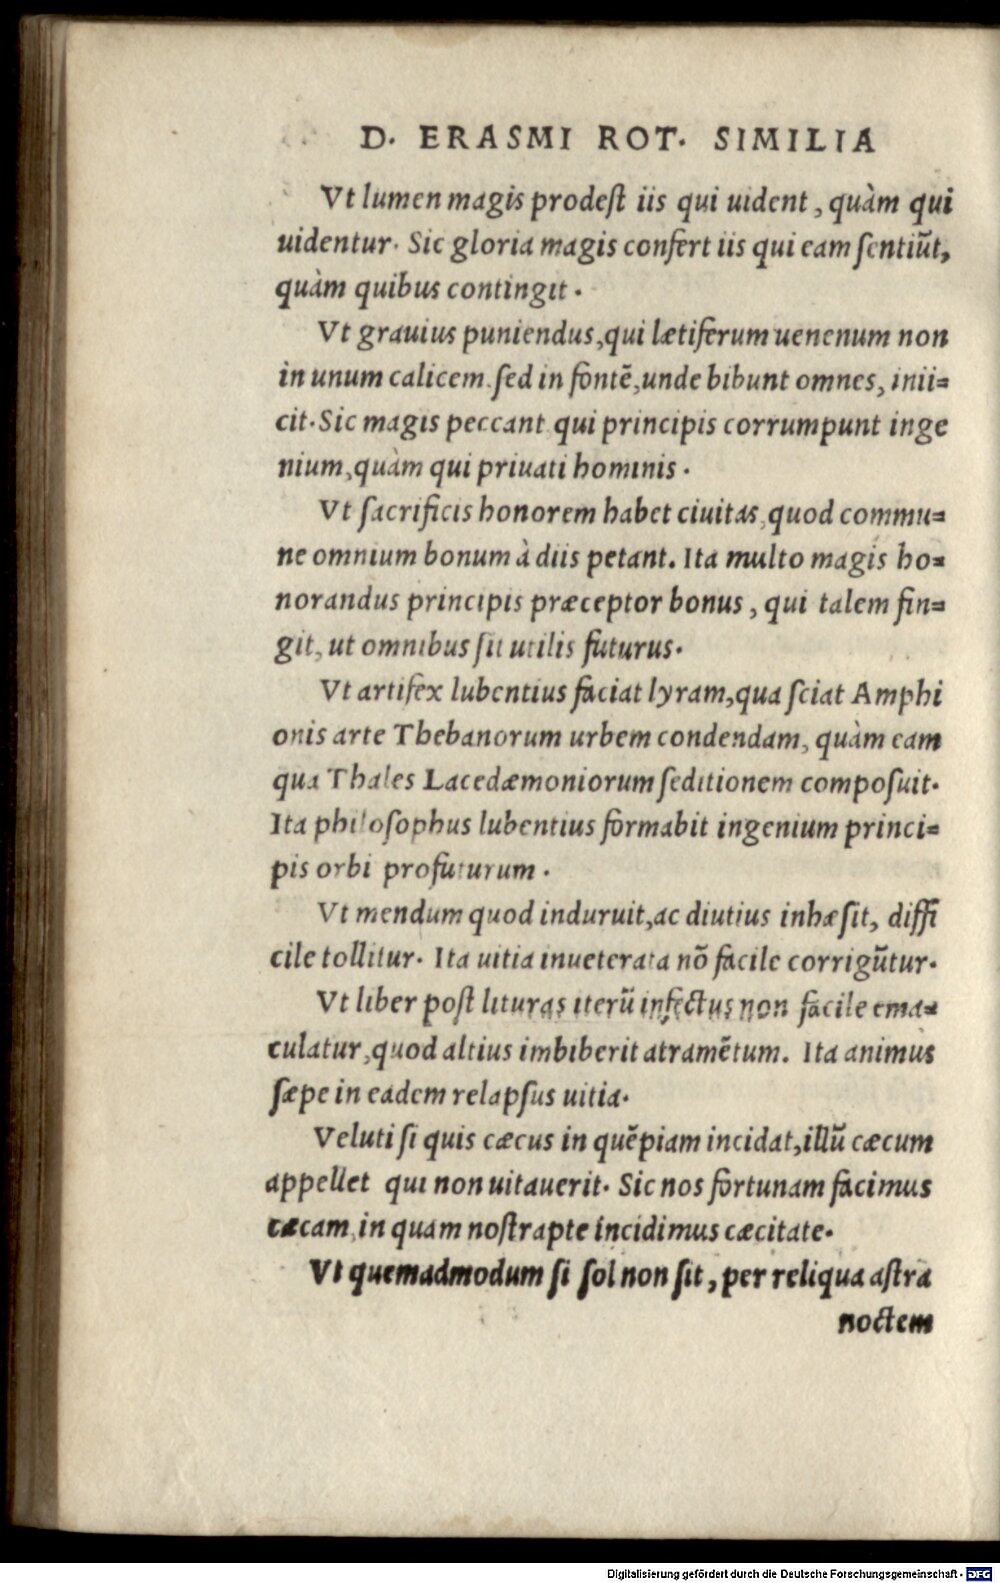 D. ERASMI ROT. SIMILIA
Vt lumen magis prodeſt iis qui uident, quàm qui
uidentur. Sic gloria magis confert iis qui eam ſentiũt,
quàm quibus contingit.
Vt grauius puniendus, qui lætiferum uenenum non
in unum calicem, ſed in fontẽ, unde bibunt omnes, inii=
cit. Sic magis peccant qui principis corrumpunt inge
nium, quàm qui priuati hominis.
Vt ſacrificis honorem habet ciuitas, quod commu=
ne omnium bonum à diis petant. Ita multo magis ho=
norandus principis præceptor bonus, qui talem fin=
git, ut omnibus ſit utilis futurus.
Vt artifex lubentius faciat lyram, qua ſciat Amphi
onis arte Thebanorum urbem condendam, quàm eam
qua Thales Lacedæmoniorum ſeditionem compoſuit.
Ita philoſophus lubentius formabit ingenium princi=
pis orbi profuturum.
Vt mendum quod induruit, ac diutius inhæſit, diffi
cile tollitur. Ita uitia inueterata nõ facile corrigũtur.
Vt liber poſt lituras iterũ infectus non facile ema=
culatur, quod altius imbiberit atramẽtum. Ita animus
ſæpe in eadem relapſus uitia.
Veluti ſi quis cæcus in quẽpiam incidat, illũ cæcum
appellet qui non uitauerit. Sic nos fortunam facimus
cæcam, in quam noſtrapte incidimus cæcitate.
Vt quemadmodum ſi ſol non ſit, per reliqua aſtra
noctem
Digitalisierung gefördert durch die Deutsche Forschungsgemeinschaft - DFG